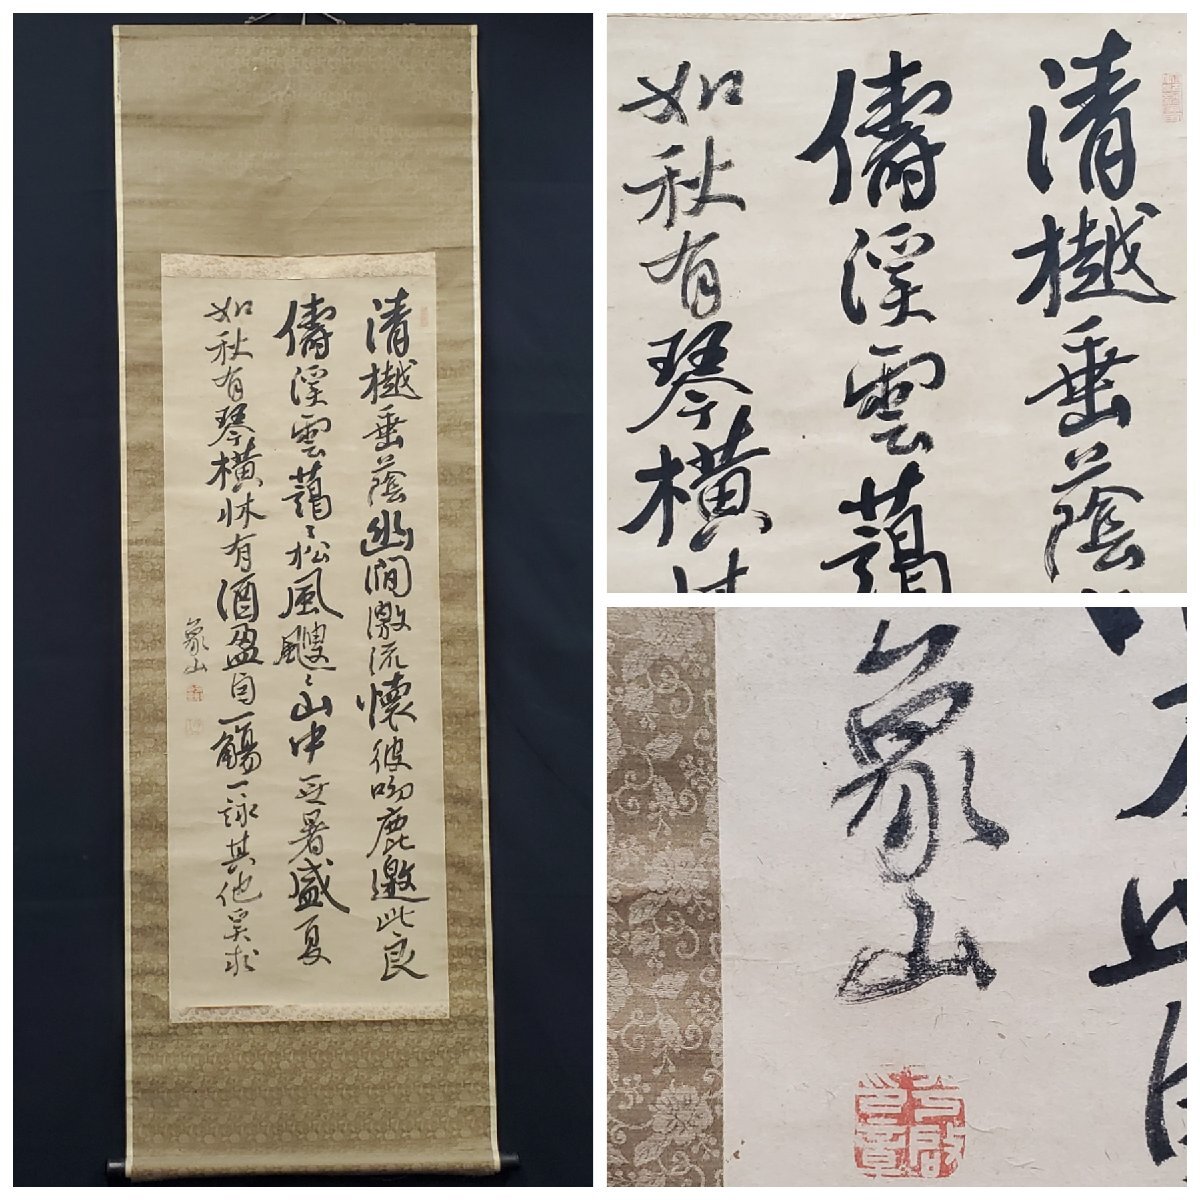 清樾垂蔭幽澗激流懷彼呦鹿邀此良
儔溪雲藹〻松風颼〻山中無暑盛夏
如秋有琴橫牀有酒盈卣一觴一詠其他奚求
象山
清樾垂蔭
儔溪雲藹
如秋有琴橫
象山